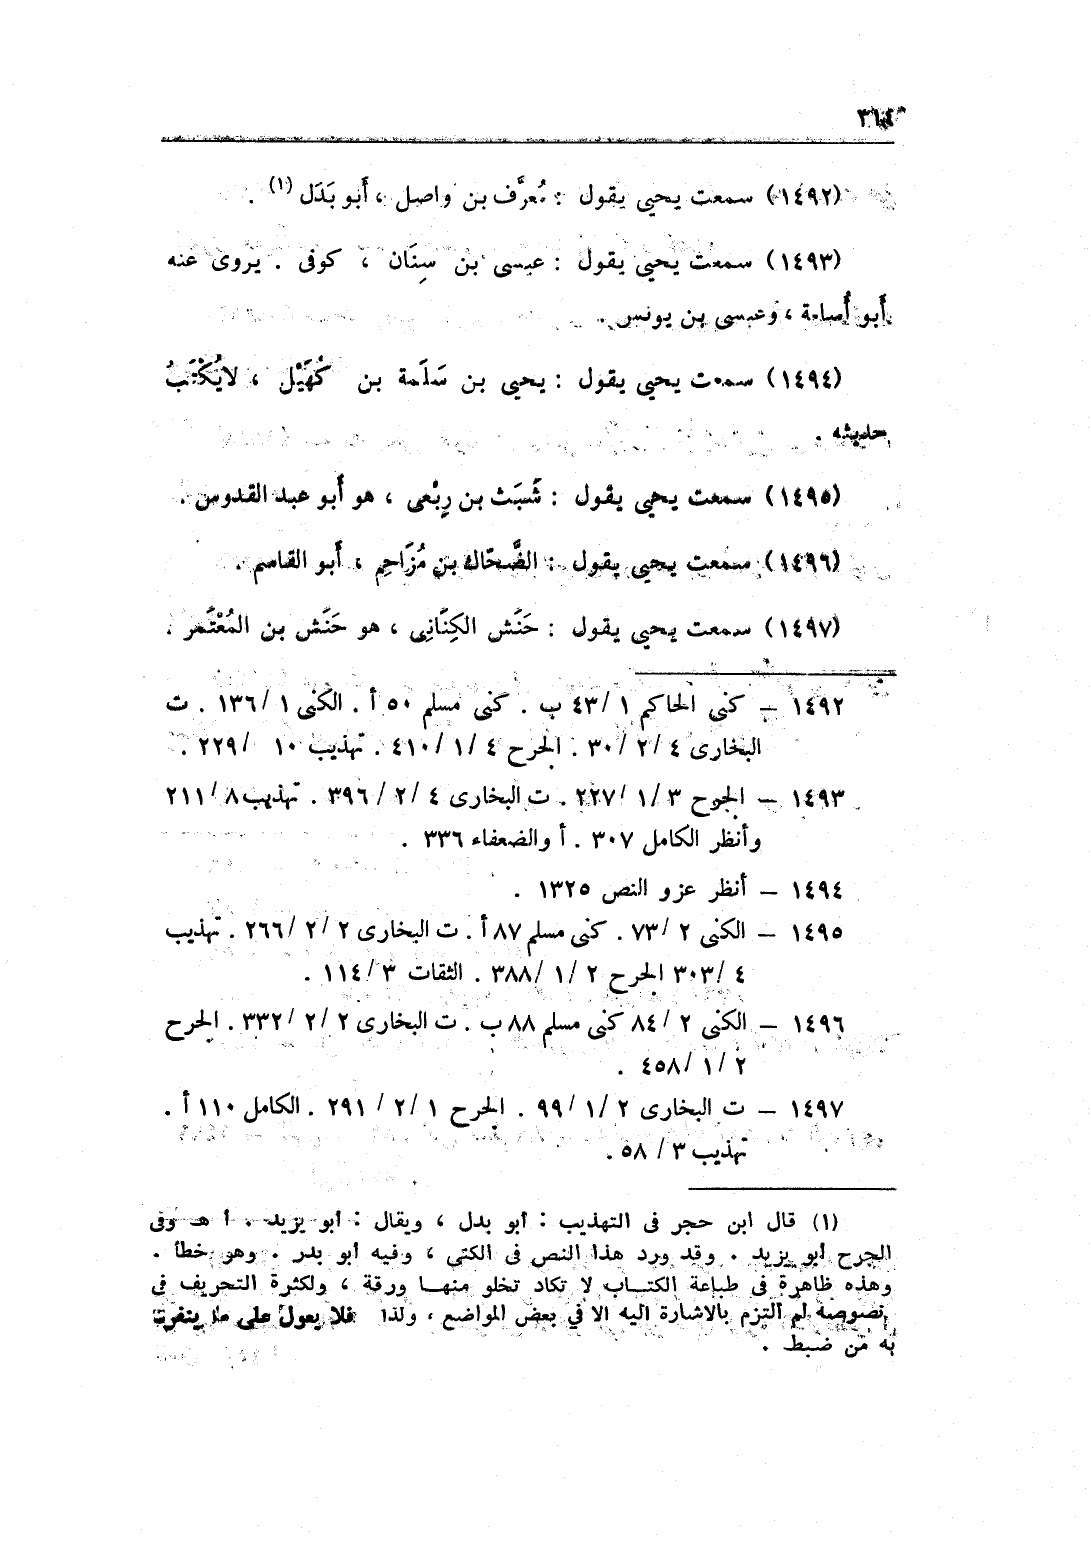 ٣٦٤
(١٤٩٢) سمعت يحيى يقول : مُعرَّف بن واصل ، أَبو بَدَل (١) .
(١٤٩٣) سمعت يحيى يقول : عيسى بن سِنَان ، كوفى . يروى عنه
أَبو أُسامة ، وعيسى بن يونس .
(١٤٩٤) سمعت يحيى يقول : يحيى بن سَلَمة بن كُهَيْل ، لايُكْتَبُ
حديثه .
(١٤٩٥) سمعت يحيى يقول : شَبَث بن رِبْعى ، هو أَبو عبد القدوس .
(١٤٩٦) سمعت يحيى يقول : الضَّحّاك بن مُزَاحِم ، أَبو القاسم .
(١٤٩٧) سمعت يحيى يقول : حَنَش الكِنَّانِى ، هو حَنَش بن المُعْتَمر .
١٤٩٢ – كنى الحاكم ١ /٤٣ ب . كنى مسلم ٥٠ أ . الكنى ١ /١٣٦ . ت
البخارى ٤ /٢ /٣٠ . الجرح ٤ /١ /٤١٠ . تهذيب ١٠ /٢٢٩ .
١٤٩٣ – الجرح ٣ /١ /٢٢٧ . ت البخارى ٤ /٢ /٣٩٦ . تهذيب ٨ /٢١١
وأنظر الكامل ٣٠٧ . أ والضعفاء ٣٣٦ .
١٤٩٤ – أنظر عزو النص ١٣٢٥ .
١٤٩٥ – الكنى ٢ /٧٣ . كنى مسلم ٨٧ أ . ت البخارى ٢ /٢ /٢٦٦ . تهذيب
٤ /٣٠٣ الجرح ٢ /١ /٣٨٨ . الثقات ٣ /١١٤ .
١٤٩٦ – الكنى ٢ /٨٤ كنى مسلم ٨٨ ب . ت البخارى ٢ /٢ /٣٣٢ . الجرح
٢ /١ /٤٥٨ .
١٤٩٧ – ت البخارى ٢ /١ /٩٩ . الجرح ١ /٢ /٢٩١ . الكامل ١١٠ أ .
تهذيب ٣ /٥٨ .
(١) قال ابن حجر فى التهذيب : أبو بدل ، ويقال : أبو يزيد . أ هـ وفى
الجرح أبو يزيد . وقد ورد هذا النص فى الكنى ، وفيه أبو بدر . وهو خطأ .
وهذه ظاهرة فى طباعة الكتـاب لا تكاد تخلو منهـا ورقة ، ولكثرة التحريف فى
نصوصه لم ألتزم بالاشارة اليه الا في بعض المواضع ، ولذا فلا يعول على ما ينفرد
به من ضبط .